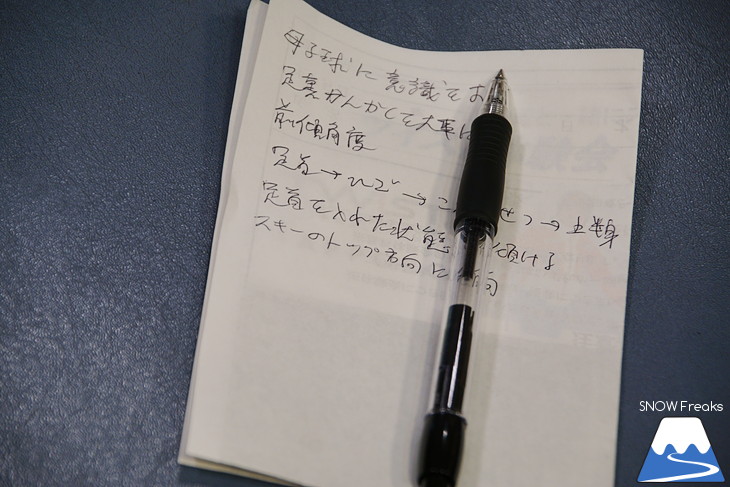 母子球に意識をお
足裏かんかくを大事に
前傾角度
足首→ひざ→こ せつ→上半身
足首を入れた状態 傾ける
スキーのトップ方向に 向
SNOW Freaks